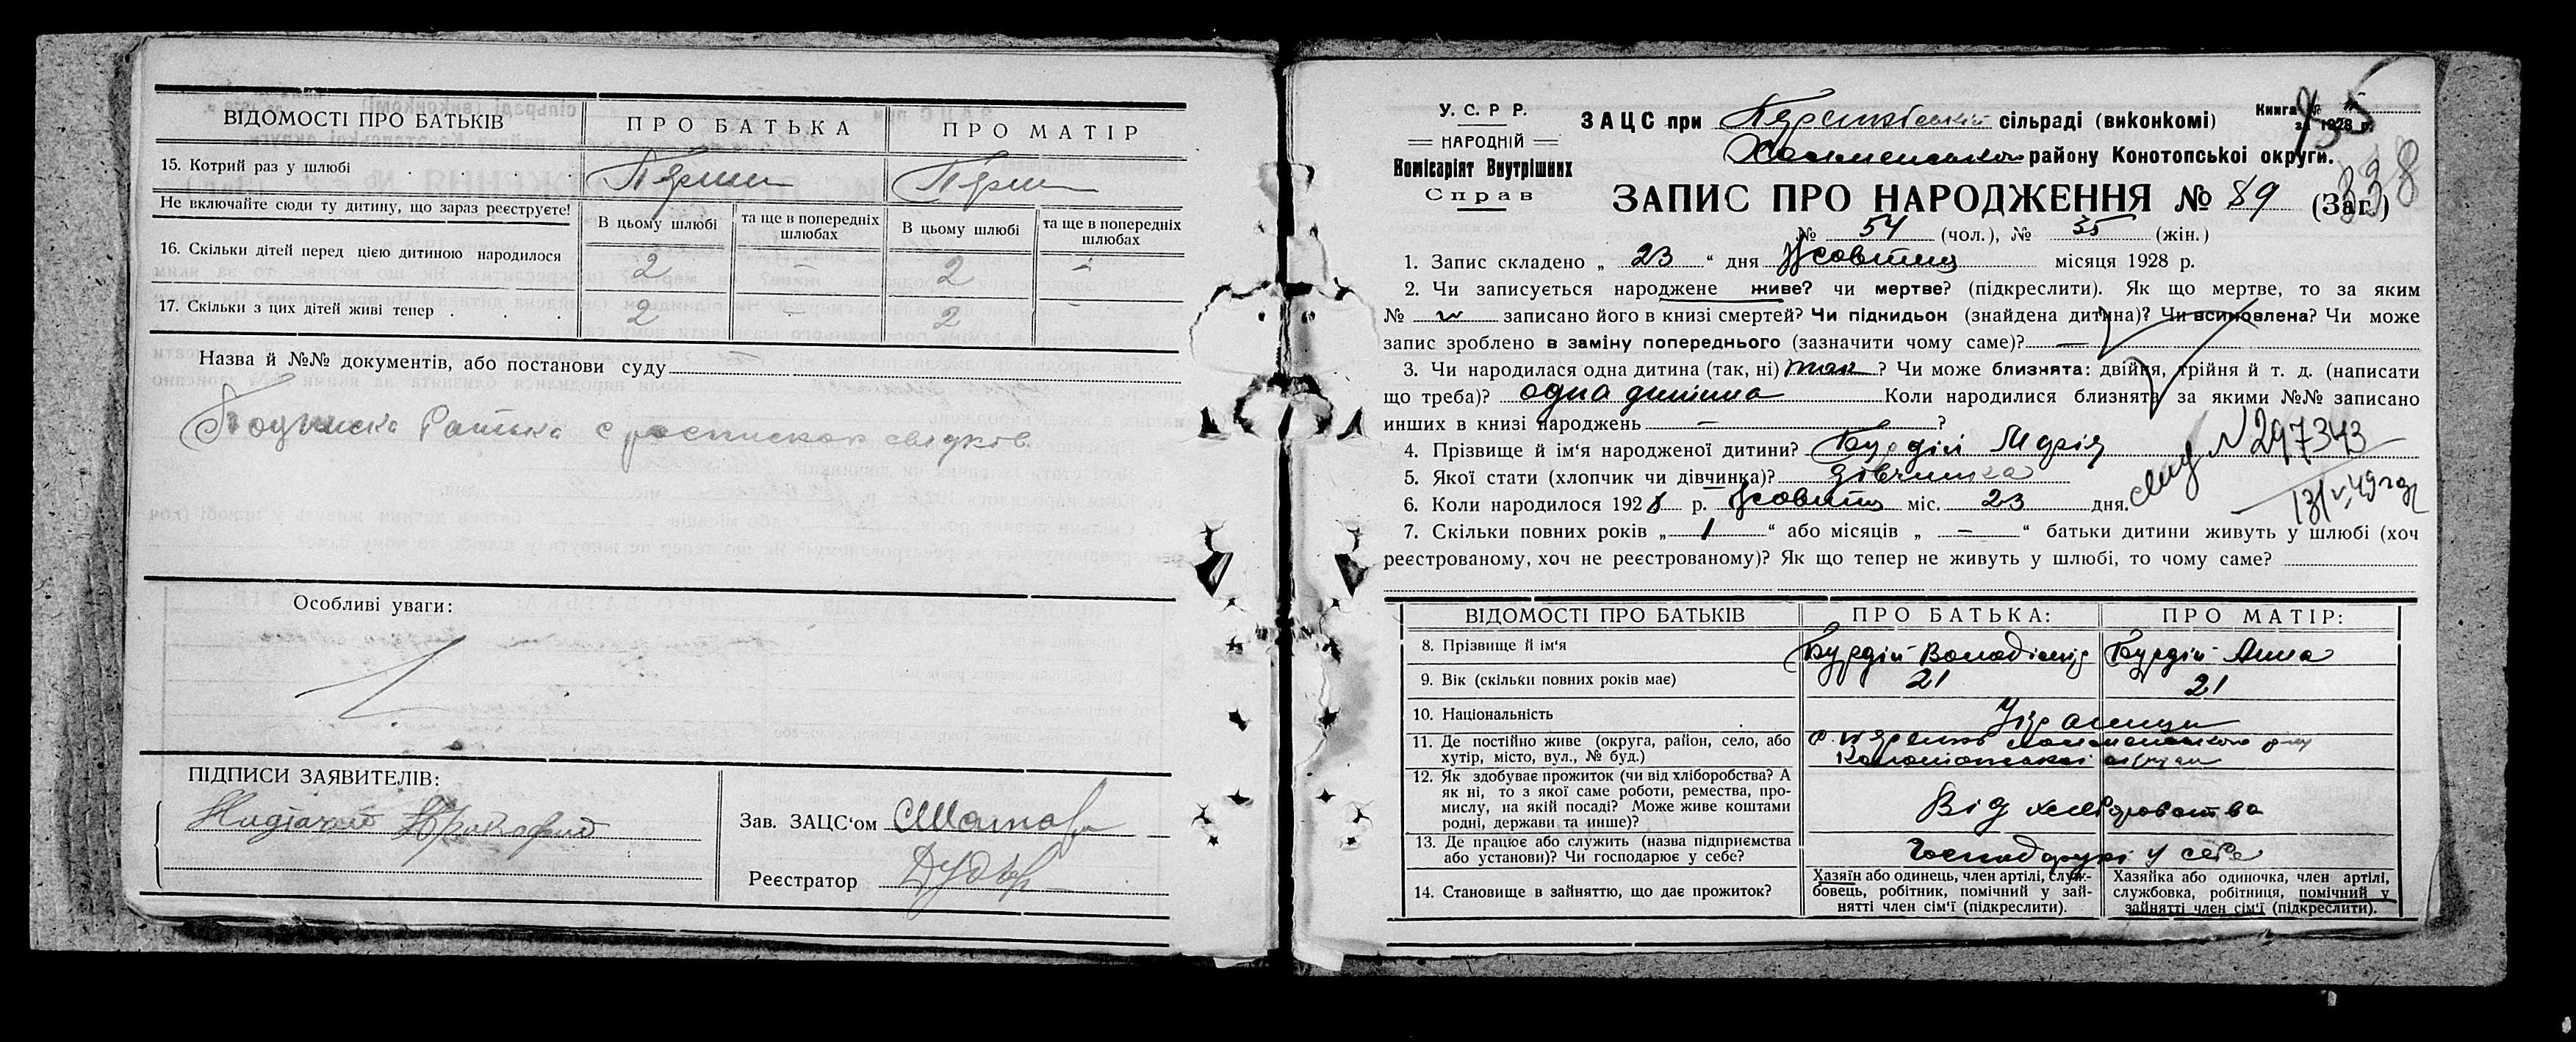 ВІДОМОСТІ ПРО БАТЬКІВ
ПРО БАТЬКА
ПРО МАТІР
15. Котрий раз у шлюбі
Перший
Перш
Не включайте сюди ту дитину, що зараз реєструєте!
В цьому шлюбі
та ще в попередніх шлюбах
В цьому шлюбі
та ще в попередніх шлюбах
16. Скільки дітей перед цією дитиною народилося
2 — 2 —
17. Скільки з цих дітей живі тепер
2 — 2 —
Назва й №№ документів, або постанови суду
Подписка батька с роспискою свідков
Особливі уваги:
ПІДПИСИ ЗАЯВИТЕЛІВ:
Зав. ЗАЦС‘ом
Реєстратор
У. С. Р. Р.
НАРОДНІЙ
Комісаріят Внутрішніх
Справ
ЗАЦС при сільраді (виконкомі)
району Конотопської округи.
Книга №
за 1928 р.
338
ЗАПИС ПРО НАРОДЖЕННЯ № 89 (Заг.)
№ 54 (чол.), № 35 (жін.)
1. Запис складено „ 23 “ дня Жовтня місяця 1928 р.
2. Чи записується народжене живе? чи мертве? (підкреслити). Як що мертве, то за яким
№ записано його в книзі смертей? Чи піднидьок (знайдена дитина)? Чи всиновлена? Чи може
запис зроблено в заміну попереднього (зазначити чому саме)? —
3. Чи народилася одна дитина (так, ні) так ? Чи може близнята: двійня, трійня й т. д. (написати
що треба)? одна дитина Коли народилися близнята за якими №№ записано
инших в книзі народжень — ?
4. Прізвище й ім‘я народженої дитини? Бурдій Марія
5. Якої стати (хлопчик чи дівчинка)? дівчинка
6. Коли народилося 1928 р. Жовтня міс. 23 дня.
№ 297343
7. Скільки повних років „ 1 “ або місяців „ — “ батьки дитини живуть у шлюбі (хоч
реєстрованому, хоч не реєстрованому)? Як що тепер не живуть у шлюбі, то чому саме?
ВІДОМОСТІ ПРО БАТЬКІВ
ПРО БАТЬКА:
ПРО МАТІР:
8. Прізвище й ім‘я
Бурдій Володімір
Бурдій Анна
9. Вік (скільки повних років має)
21
21
10. Національність
Українци
11. Де постійно живе (округа, район, село, або
хутір, місто, вул., № буд.)
Конотопської округи
12. Як здобуває прожиток (чи від хліборобства? А
як ні, то з якої саме роботи, ремества, про-
мислу, на якій посаді? Може живе коштами
родні, держави та инше)?
Від хліборобства
13. Де працює або служить (назва підприємства
або установи)? Чи господарює у себе?
Господарює у себе
14. Становище в зайняттю, що дає прожиток?
Хазяїн або одинець, член артілі, служ-
бовець, робітник, помічний у зай-
нятті член сім‘ї (підкреслити).
Хазяйка або одиночка, член артілі,
службовка, робітниця, помічний у
зайнятті член сім‘ї (підкреслити).